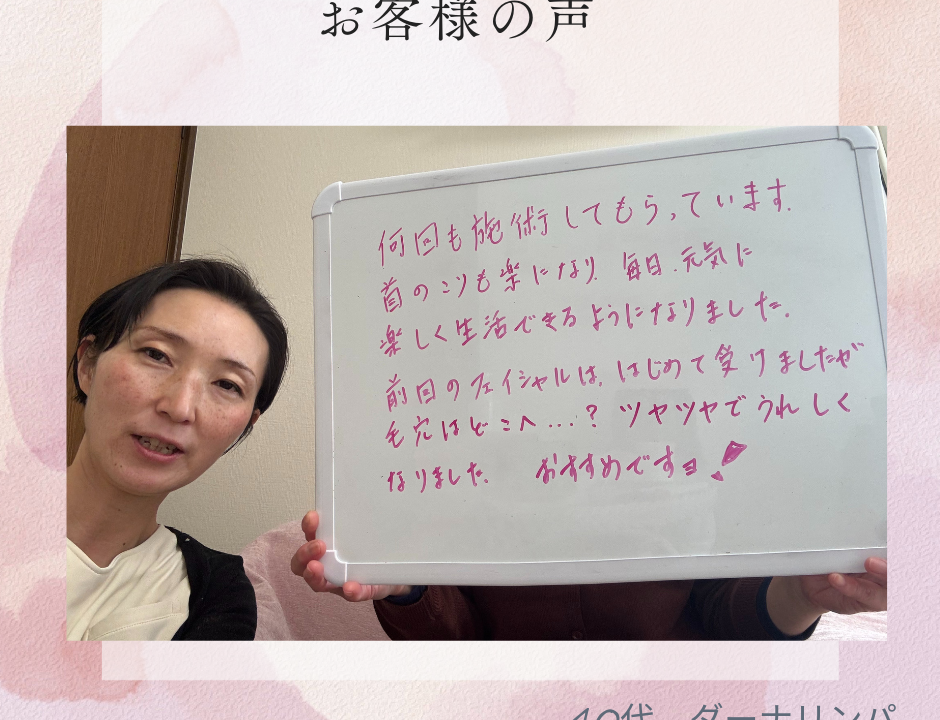 お客様の声
何回も施術してもらっています。
首のこりも楽になり、毎日、元気に
楽しく生活できるようになりました。
前回のフェイシャルは、はじめて受けましたが
毛穴はどこへ…? ツヤツヤでうれしく
なりました。 おすすめですヨ!
40代 ダーナリンパ